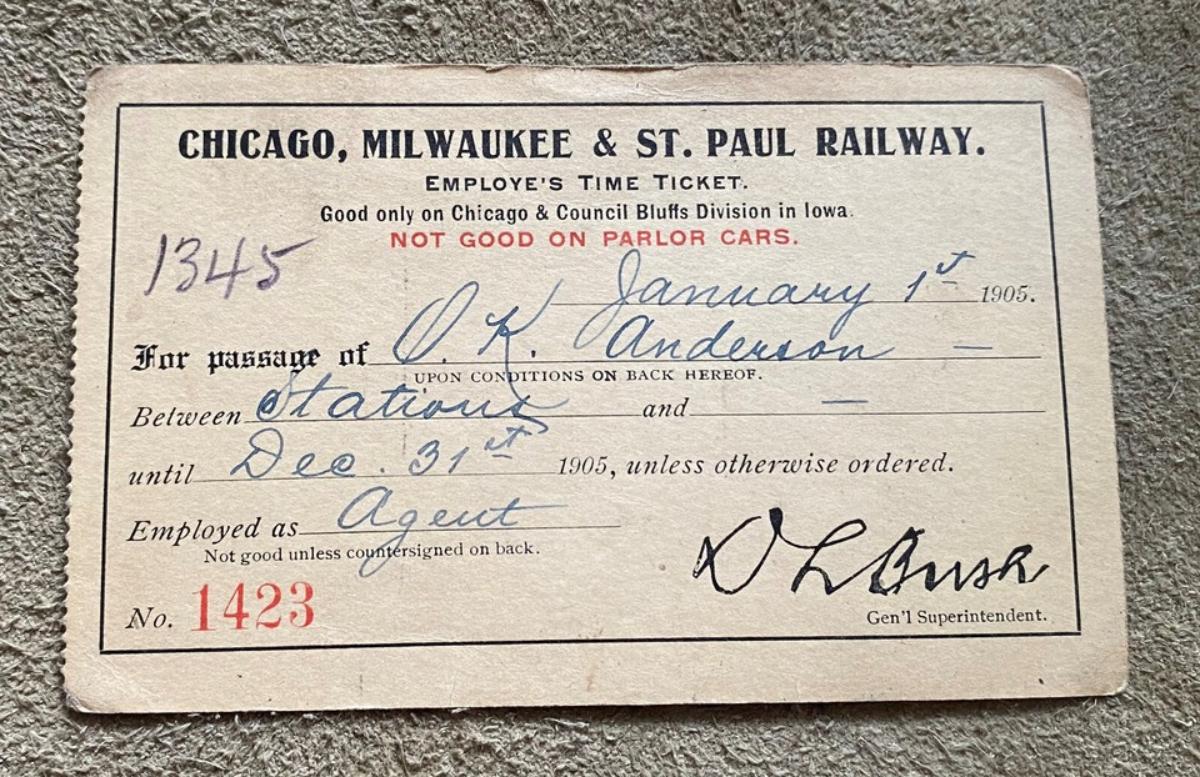 CHICAGO, MILWAUKEE & ST. PAUL RAILWAY.
EMPLOYE'S TIME TICKET.
Good only on Chicago & Council Bluffs Division in Iowa.
NOT GOOD ON PARLOR CARS.
1345
January 1st 1905.
For passage of O. K. Anderson —
UPON CONDITIONS ON BACK HEREOF.
Between Stations and —
until Dec. 31st 1905, unless otherwise ordered.
Employed as Agent
Not good unless countersigned on back.
D L Bush
No. 1423
Gen'l Superintendent.